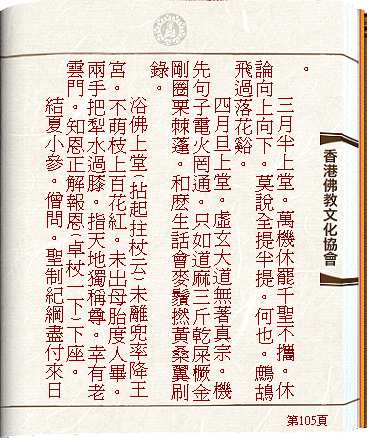 。
三月半上堂。萬機休罷千聖不攜。休
論向上向下。莫說全提半提。何也。鷓鴣
飛過落花谿。
四月旦上堂。虛玄大道無著真宗。機
先句子電火罔通。只如道麻三斤乾屎橛金
剛圈栗棘蓬。和麼生話會麥鬚撚黃桑翼刷
錄。
浴佛上堂(拈起拄杖云)未離兜率降王
宮。不萌枝上百花紅。未出母胎度人畢。
兩手把犁水過膝。指天地獨稱尊。幸有老
雲門。知恩正解報恩(卓杖一下)下座。
結夏小參。僧問。聖制紀綱盡付來日
香港佛教文化協會
第105頁